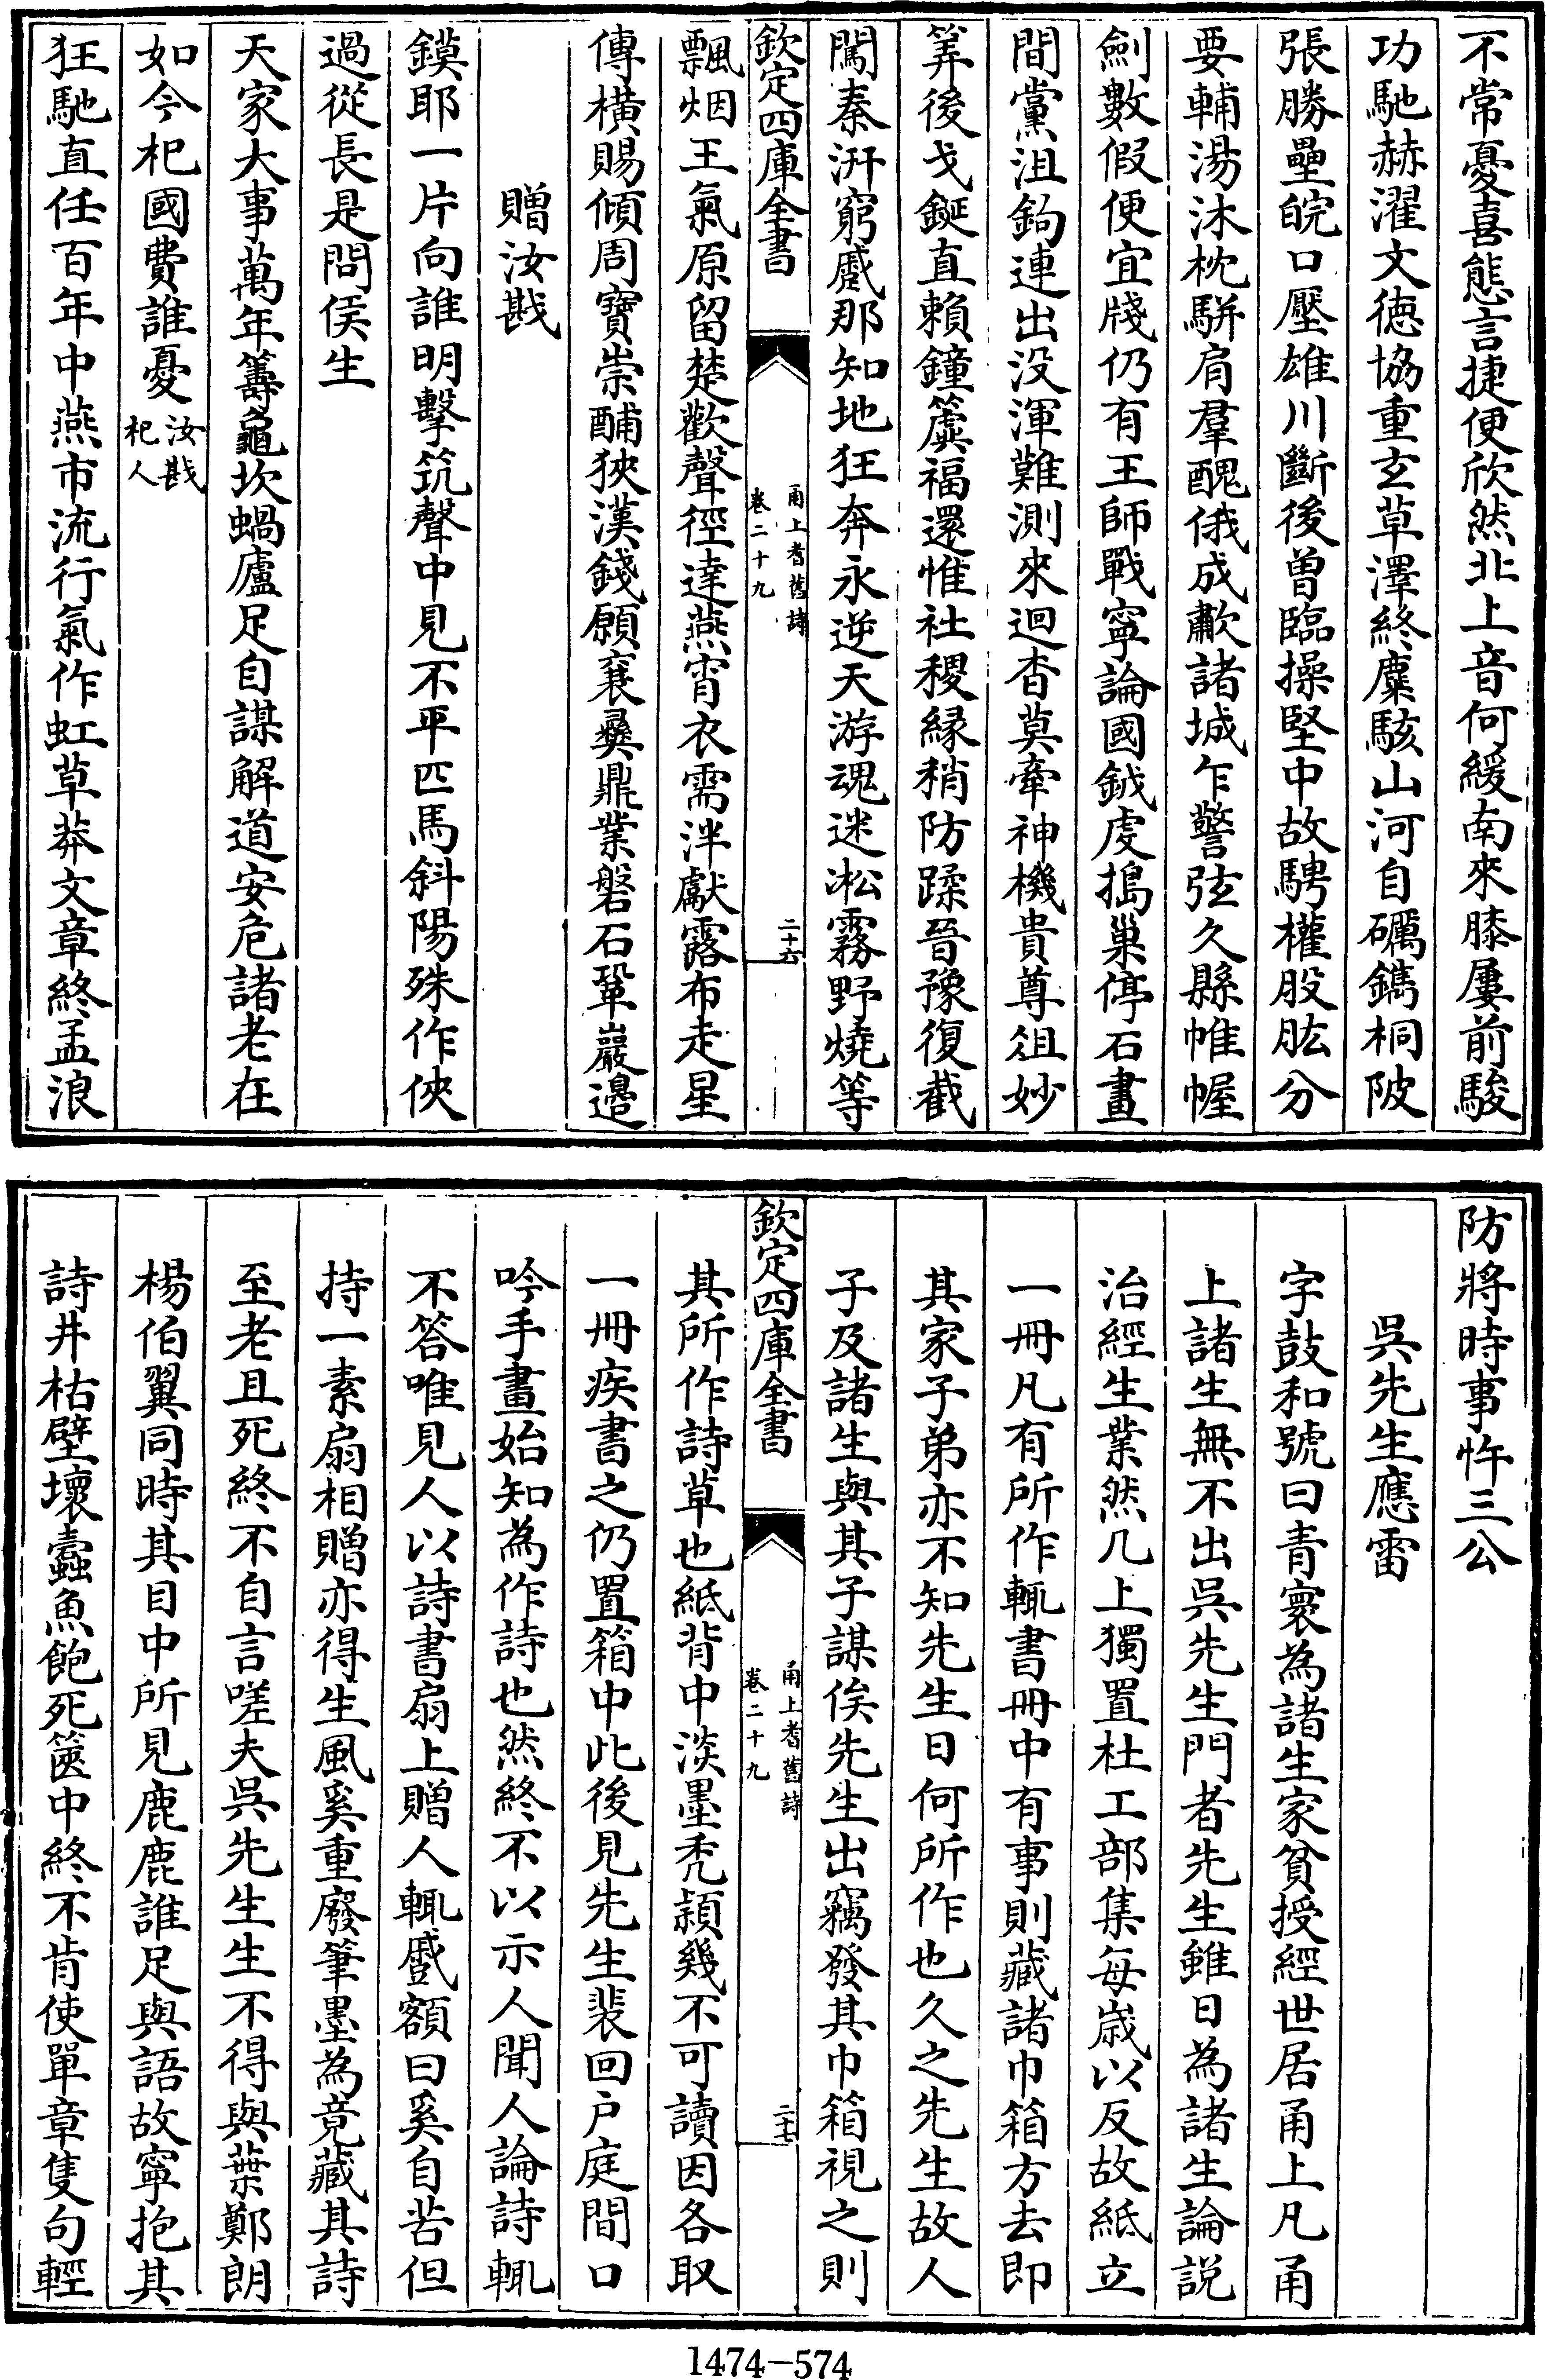 不常憂喜態言捷便欣然北上音何緩南來膝屢前駿
功馳赫濯文徳協重玄草澤終麇駭山河自礪鐫桐陂
張勝壘皖口壓雄川斷後曽臨操堅中故騁權股肱分
要輔湯沐枕駢肩羣醜俄成歗諸城乍警弦久縣帷幄
劍數假便宜牋仍有王師戰寧論國鉞虔搗巢停石畫
間黨沮鉤連出没渾難測來迴杳莫牽神機貴尊俎妙
筭後戈鋋直賴鐘簴福還惟社稷縁稍防蹂晉豫復截
闖秦汧窮蹙那知地狂奔永逆天游魂迷凇霧野燒等
欽定四庫全書
甬上耆舊詩
卷二十九
二十六
飄烟王氣原留楚歡聲徑達燕宵衣需泮獻露布走星
傳橫賜傾周寶崇酺狹漢錢願襄彞鼎業磐石鞏巖邉
贈汝戡
鏌耶一片向誰明擊筑聲中見不平匹馬斜陽殊作俠
過從長是問侯生
天家大事萬年籌龜坎蝸廬足自謀解道安危諸老在
如今杞國費誰憂汝戡
杞人
狂馳直任百年中燕市流行氣作虹草莽文章終孟浪
防將時事忤三公
吳先生應雷
字鼓和號曰青寰為諸生家貧授經世居甬上凡甬
上諸生無不出吳先生門者先生雖日為諸生論説
治經生業然几上獨置杜工部集每歳以反故紙立
一冊凡有所作輒書冊中有事則藏諸巾箱方去即
其家子弟亦不知先生日何所作也久之先生故人
子及諸生與其子謀俟先生出竊發其巾箱視之則
欽定四庫全書
甬上耆舊詩
卷二十九
二十七
其所作詩草也紙背中淡墨秃穎幾不可讀因各取
一冊疾書之仍置箱中此後見先生裴回户庭間口
吟手畫始知為作詩也然終不以示人聞人論詩輒
不答唯見人以詩書扇上贈人輒蹙額曰奚自苦但
持一素扇相贈亦得生風奚重廢筆墨為竟藏其詩
至老且死終不自言嗟夫吳先生生不得與葉鄭朗
楊伯翼同時其目中所見鹿鹿誰足與語故寧抱其
詩井枯壁壞蠹魚飽死篋中終不肯使單章隻句輕
1474-574